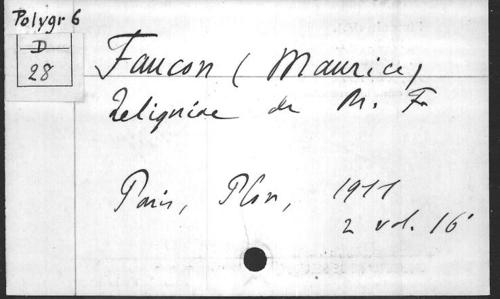 Polygr 6
D
28
Faucon (Maurice)
Reliquiae de M. F.
Paris, Plon, 1911
2 vol. 16°